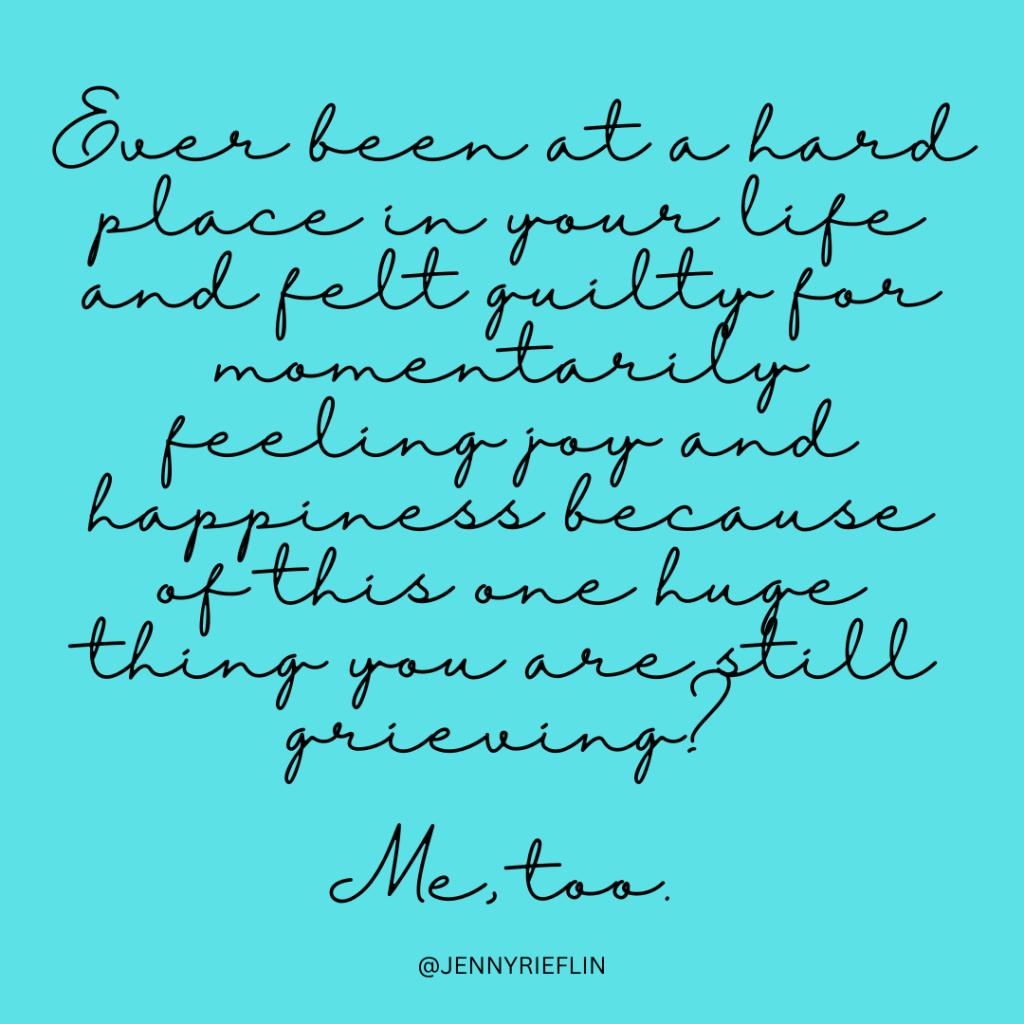 Ever been at a hard
place in your life
and felt guilty for
momentarily
feeling joy and
happiness because
of this one huge
thing you are still
grieving?
Me, too.
@JENNYRIEFLIN